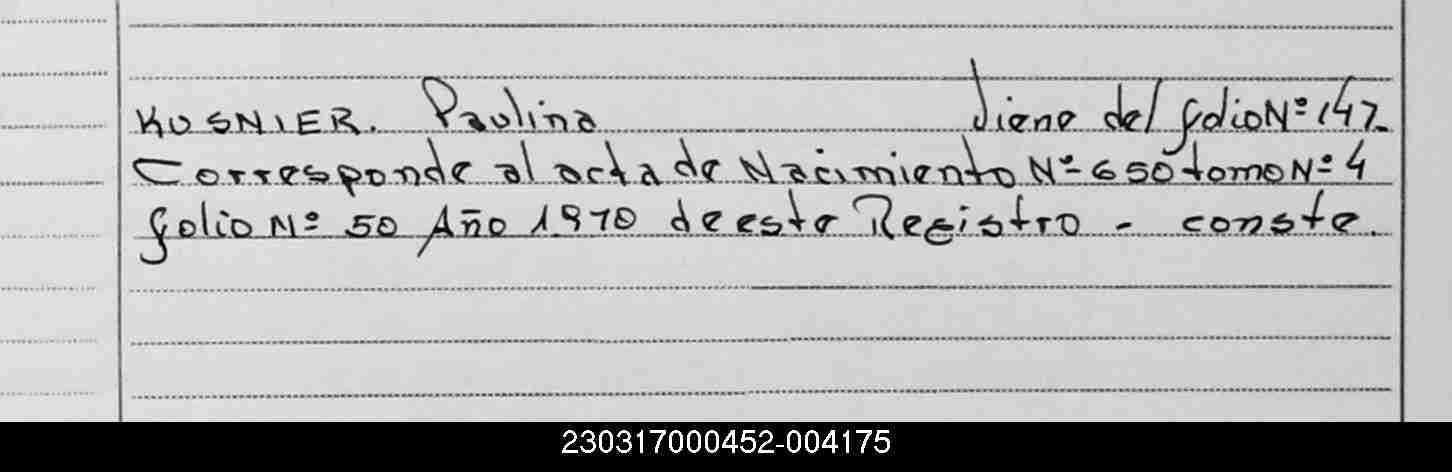 KUSNIER. Paulina Viene del folio Nº 147.
Corresponde al acta de Nacimiento Nº 650 tomo Nº 4
folio Nº 50 Año 1970 de este Registro - conste.
230317000452-004175